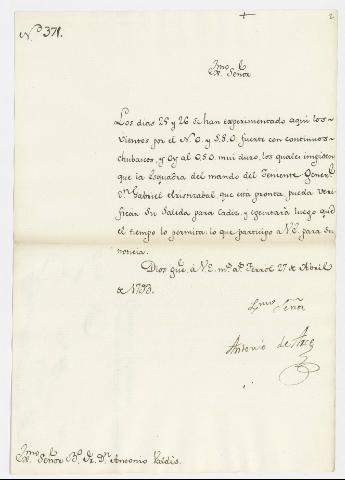 2
N.º 371.
Exmo. Señor.
Los dias 25 y 26 se han experimentado aqui los
vientos por el N.O. y S.S.O. fuerte con continuos
chubascos, y oy al O.S.O. mui duro, los quales impiden
que la Esquadra del mando del Teniente Genl.
Dn. Gabriel Aristizabal que está pronta, pueda veri-
ficar su salida para Cadiz, y egecutará luego que
el tiempo lo permita: lo que participo á V.E. para su
noticia.
Dios gue. á V.E. ms. as. Ferrol 27 de Abril
de 1793.
Exmo. Señor
Antonio de Arce
Exmo. Señor Bo. Fr. Dn. Antonio Valdés.